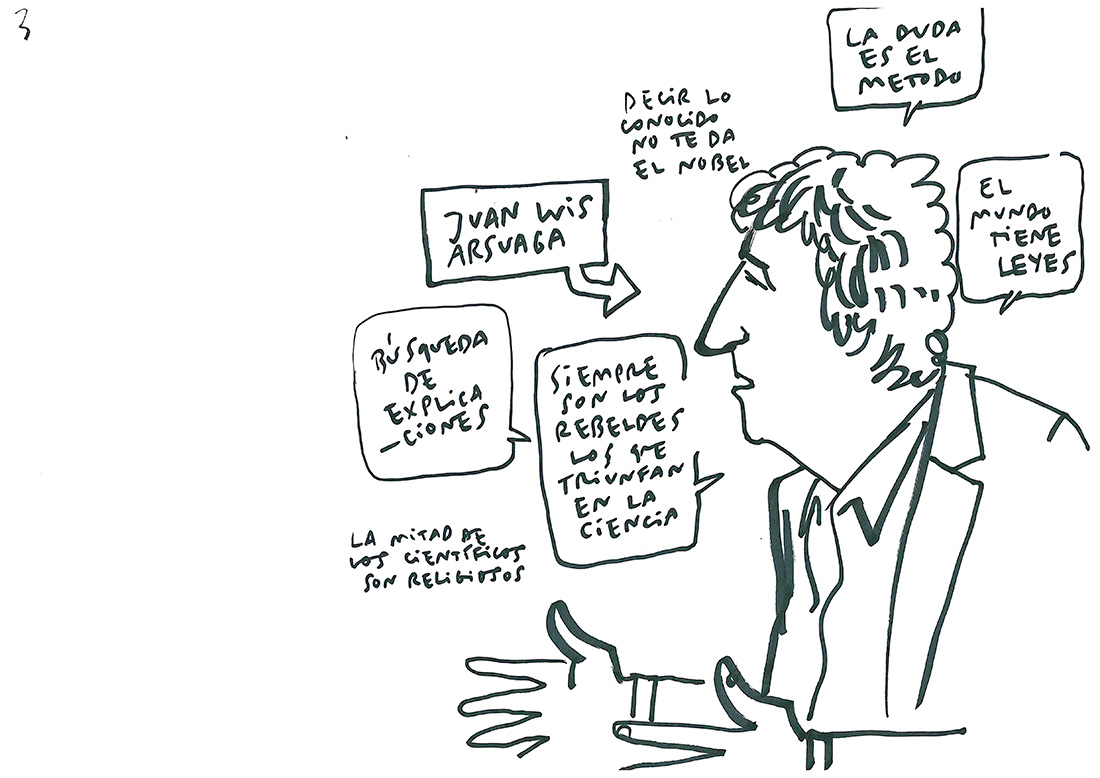 3
LA DUDA
ES EL
METODO
DECIR LO
CONOCIDO
NO TE DA
EL NOBEL
EL
MUNDO
TIENE
LEYES
JUAN LUIS
ARSUAGA
BÚSQUEDA
DE
EXPLICA
-CIONES
SIEMPRE
SON LOS
REBELDES
LOS QUE
TRIUNFAN
EN LA
CIENCIA
LA MITAD DE
LOS CIENTÍFICOS
SON RELIGIOSOS